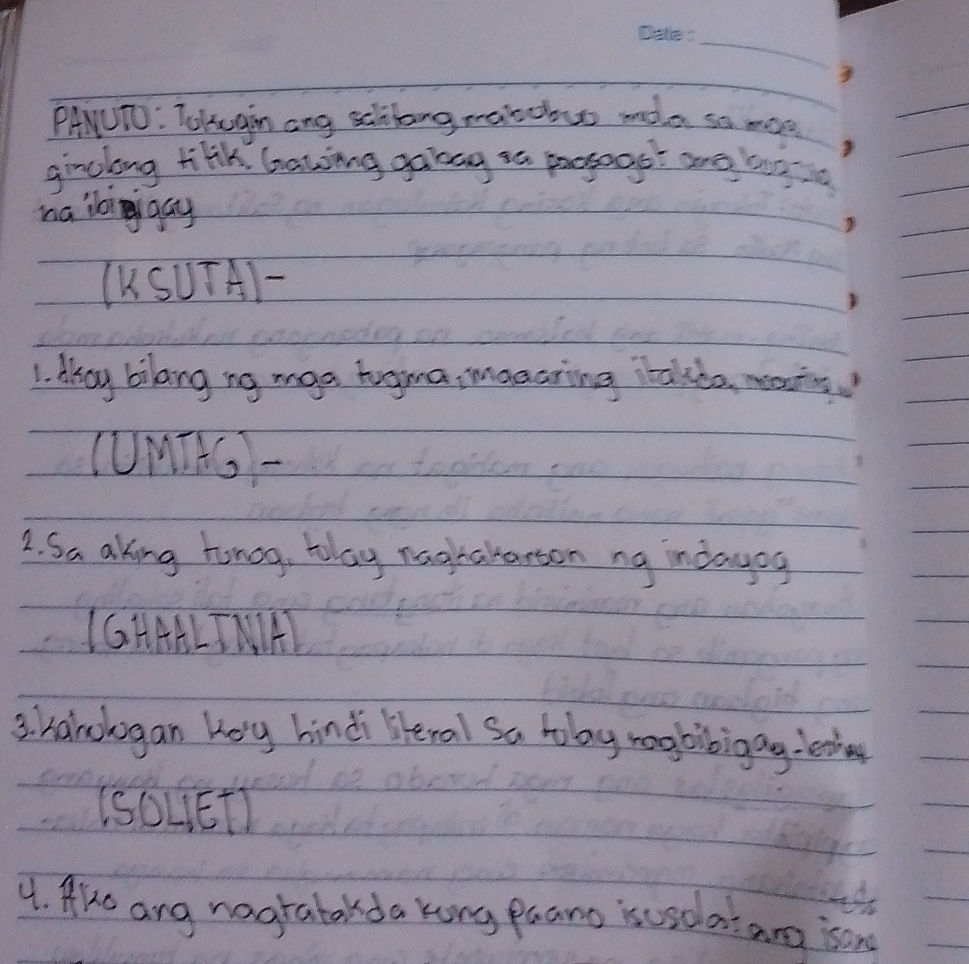 Date:
PANUTO: Tukugin ang salitang mabubuo mula sa mga
ginulong titik. Gawing gabay sa pagsagot ang
na ibinigay
(KSUTA)-
1. Akoy bilang ng mga tugma, maaaring itakda,
(UMTAG)-
2. Sa aking tunog, tulay nagkakaroon ng indayog
(GHAALINIA)
3. kahulugan koy hindi literal Sa tulay nagbibigay
(SOLIET)
4. Ako ang nagtatakda kung paano isusulat ang isang